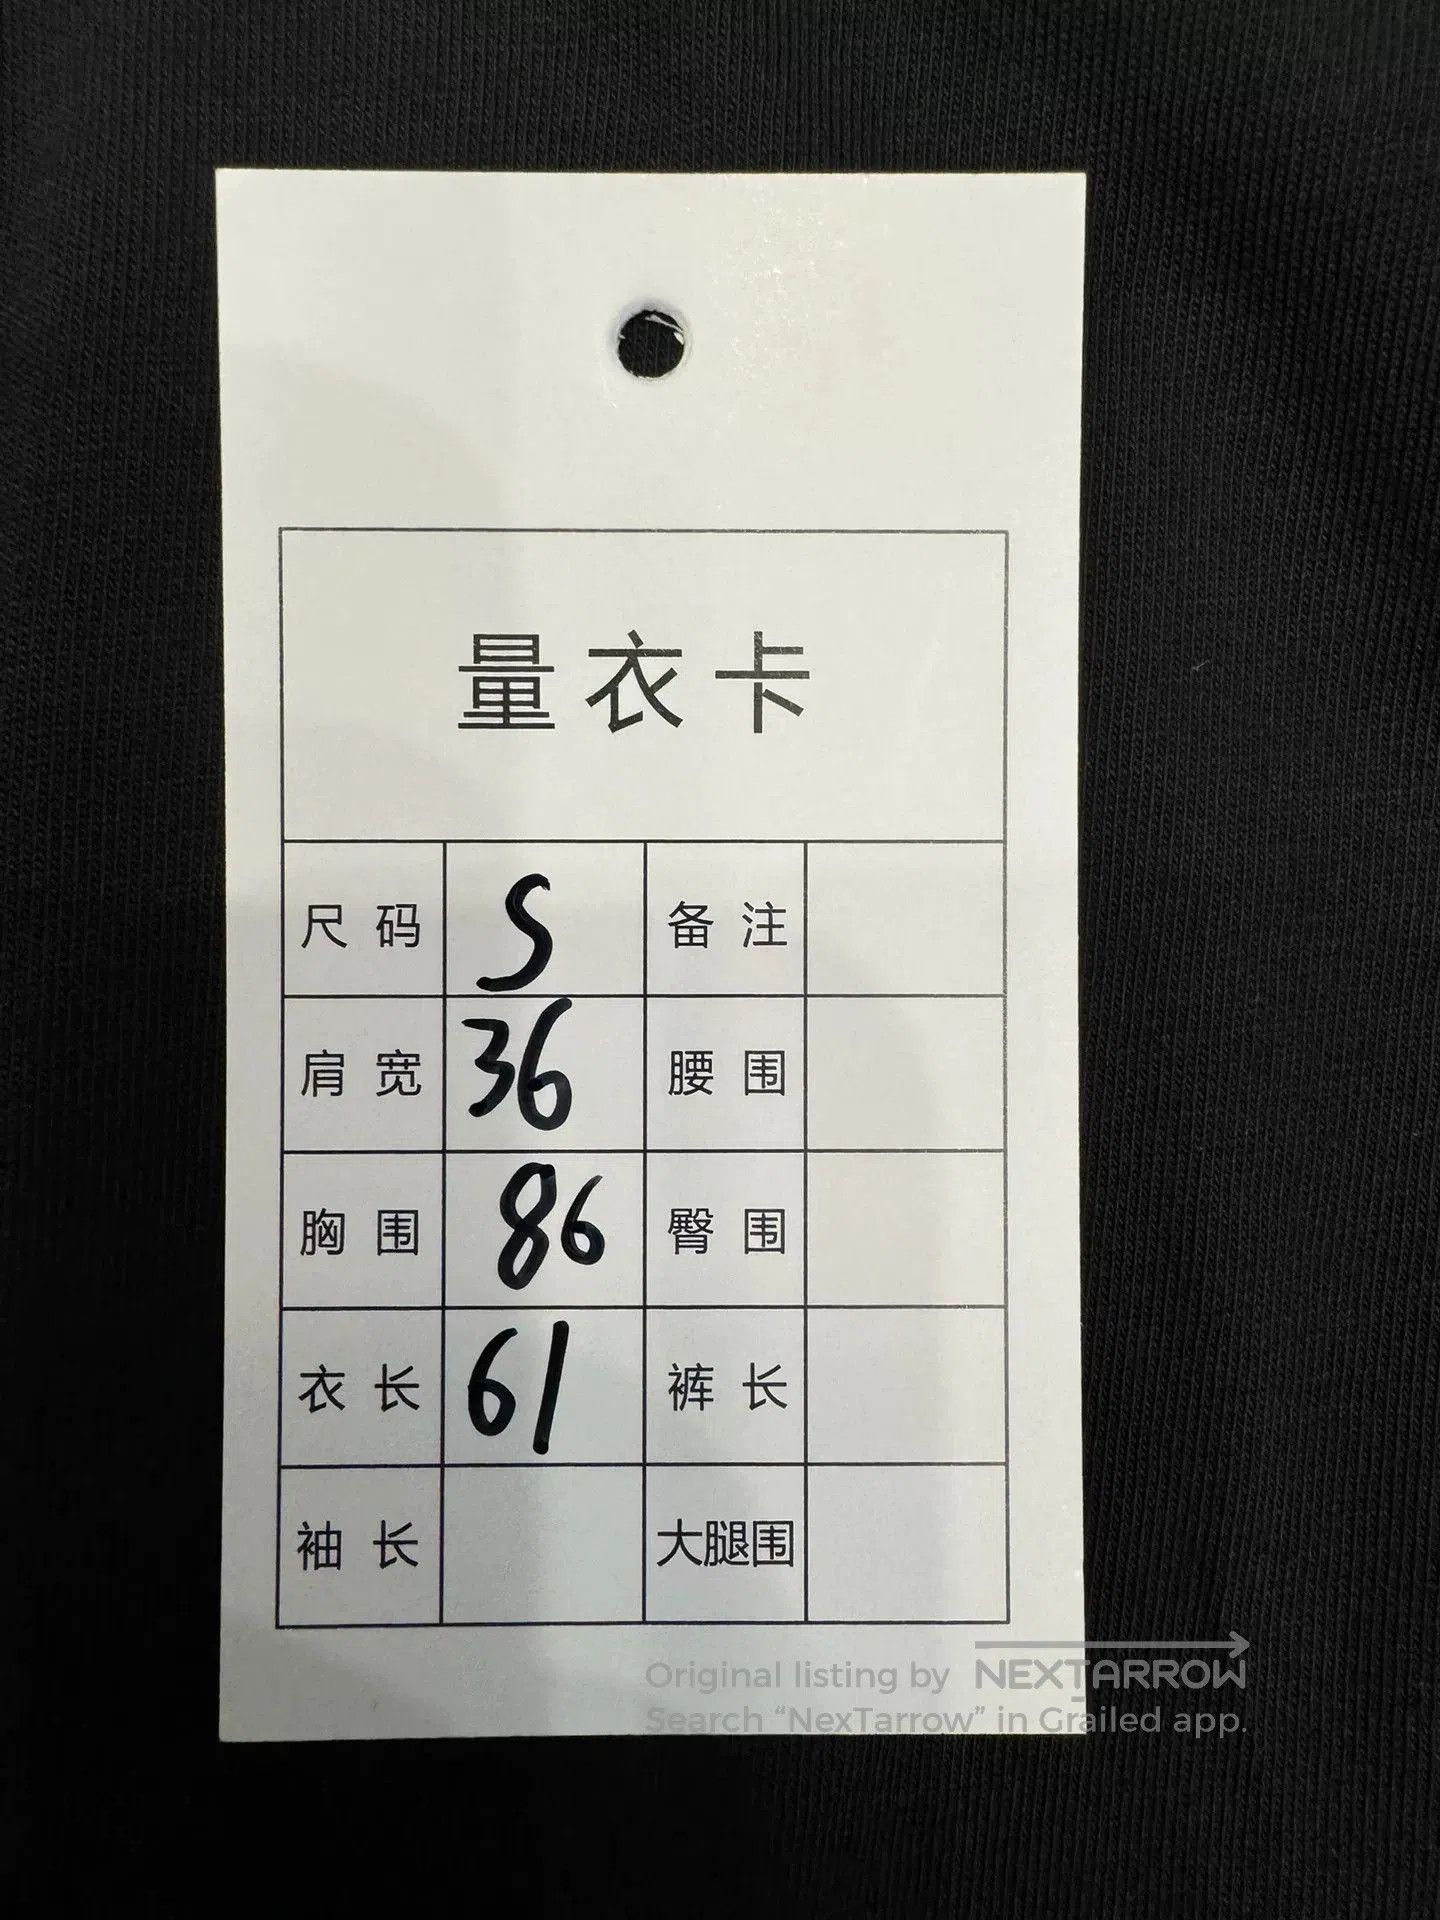 量衣卡
尺码 S 备注
肩宽 36 腰围
胸围 86 臀围
衣长 61 裤长
袖长 大腿围
Original listing by NEXTARROW
Search “NexTarrow” in Grailed app.